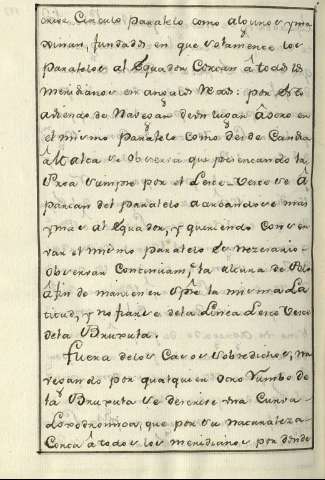 Circulo paralelo como algunos yma
xinan, fundados en que solamente los
paralelos al Equador Cortan â todos los
meridianos en angulos Rectos: por esto
aviendo de Navegar de un lugar â otro en
el mismo paralelo como desde Candia
â Malta se observa que
por el Leste-Oeste se â
partan del paralelo mas
y mas al Equador, y queriendo Conser
var el mismo paralelo Es nezesario
observar Continuam.te la altura de Polo
â fin de mantenerse sp.re la misma La
titud, y no fiarse dela Linea Leste Oeste
dela Bruxula.
Fuera delos Casos sobredichos, na
vegando por qualquier otro Rumbo de
la Bruxula se descrive una Curva
Loxodromica, que por su naturaleza
Corta â todos los meridianos por donde